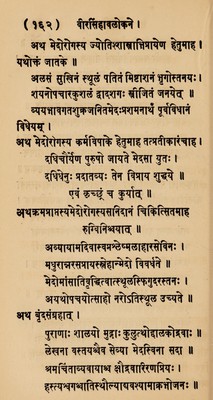 (१६२) वीरसिंहावलोकने ।
अथ मेदोरोगस्य ज्योतिःशास्त्राभिप्रायेण हेतुमाह ।
यथोक्तं जातके ॥
अलसं सुखिनं स्थूलं पतितं मिष्टाशनं भृगोस्तनयः ।
शयनोपचारकुशलं द्वादशगः स्त्रीजितं जनयेत् ॥
व्ययभावगतशुक्रजनितमेदःप्रशमनार्थं पूर्वविधानं
विधेयम् ।
अथ मेदोरोगस्य कर्मविपाके हेतुमाह तत्प्रतीकारंचाह ।
दधिचौर्येण पुरुषो जायते मेदसा युतः ।
दधिधेनुः प्रदातव्यः तेन विप्राय शुद्धये ॥
एवं कृच्छ्रं च कुर्यात् ॥
अथक्रमप्राप्तस्यमेदोरोगस्यसनिदानं चिकित्सितमाह
रुग्विनिश्चयात् ॥
अव्यायामदिवास्वप्नश्लेष्मलाहारसेविनः ।
मधुरान्नरसप्रायस्स्नेहान्मेदो विवर्धते ॥
मेदोमांसातिवृद्धित्वात्स्थूलस्फिगुदरस्तनः ।
अयथोपचयोत्साहो नरोऽतिस्थूल उच्यते ॥
अथ वृंदसंग्रहात् ।
पुराणाः शालयो मुद्गाः कुलुत्थोद्दालकोद्रवाः ॥
लेखना वस्तयश्चैव सेव्या मेदस्विना सदा ॥
श्रमचिंताव्यवायाध्व क्षौद्रवारिरणप्रियः ।
हरत्यश्वगश्वातिस्थौल्यायवश्यामाकभोजनः ॥